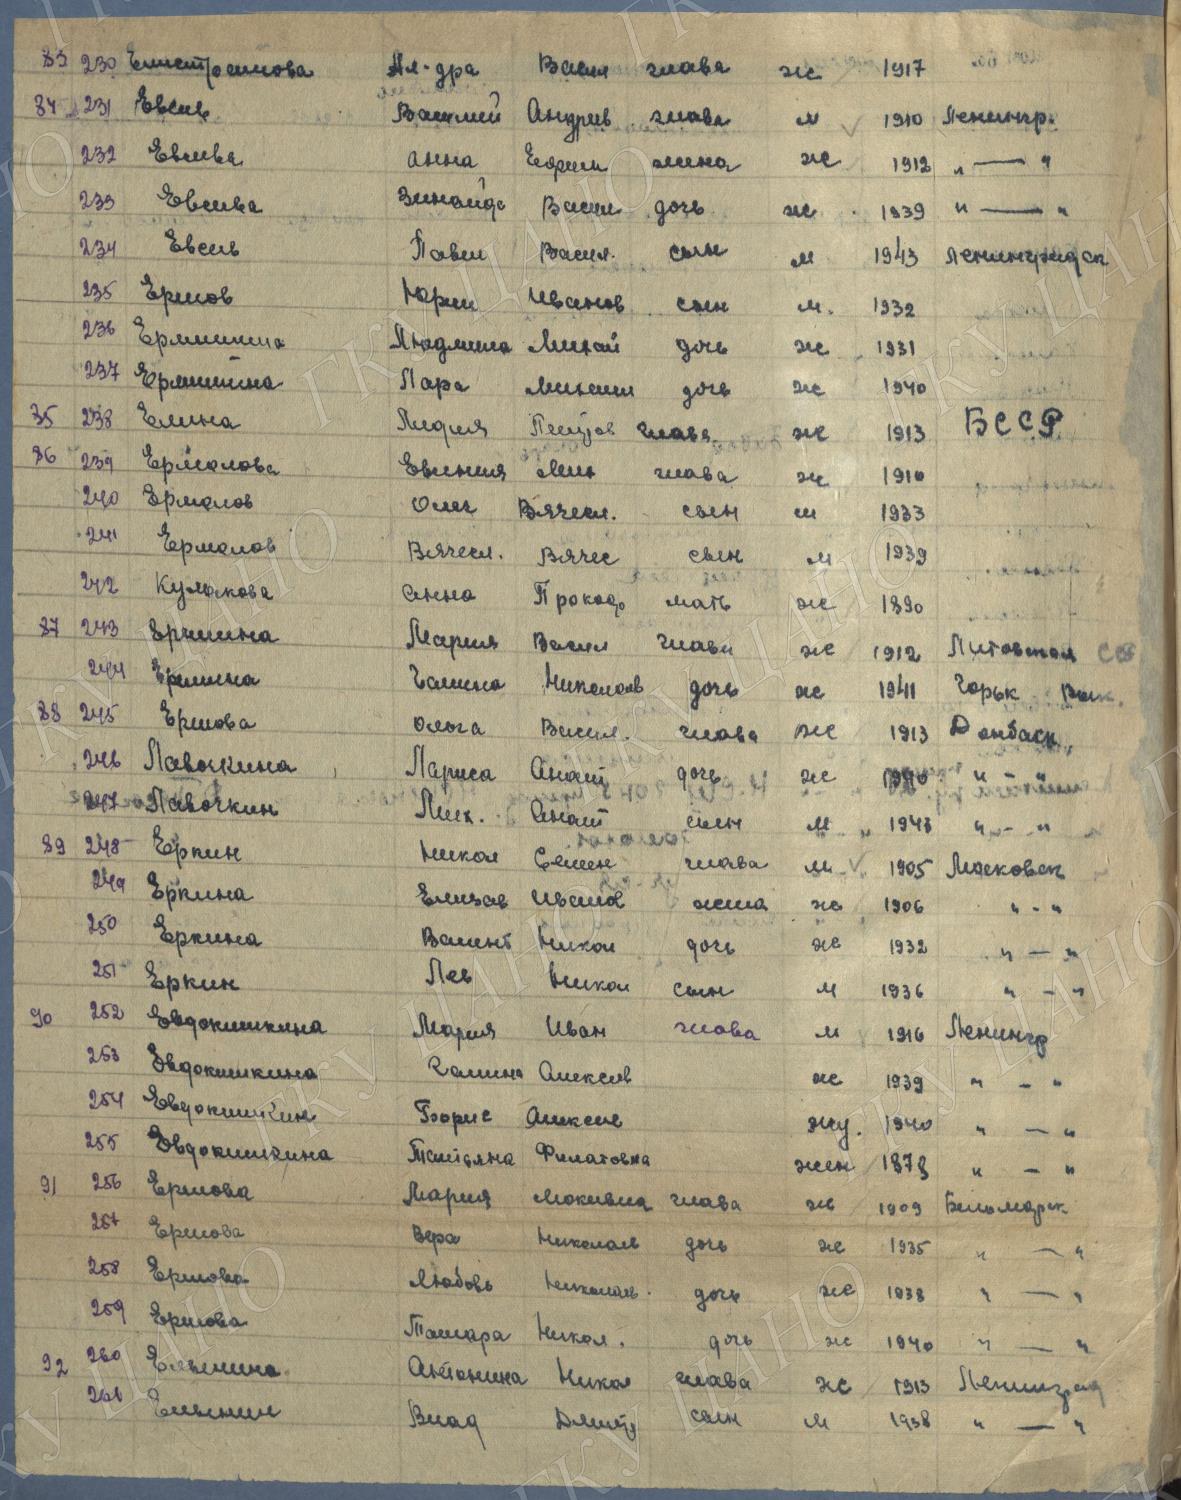 83 230 Елистрасимова Ал-дра Васил глава ж 1917
84 231 Евсив Василий Андрив глава м 1910 Ленингр.
232 Евсива Анна Ефрим жена ж 1912 " — "
233 Евсива Зинаида Васил дочь ж 1939 " — "
234 Евсив Павел Васил. сын м 1943 Ленинградск
235 Ершов Юрий Иванов сын м. 1932
236 Людмила дочь ж 1931
237 Лара дочь ж 1940
85 238 Елина Лидия Петров глава ж 1913 БССР
86 239 Ермолова Евгения Мих глава ж 1910
240 Ермолов Олег Вячесл. сын м 1933
241 Ермолов Вячесл. Вячес сын м 1939
242 Кулакова Анна Прокоф мать ж 1890
87 243 Мария Васил глава ж 1912 Литовская СС
244 Галина Николаев дочь ж 1941 Горьк
88 245 Ершова Ольга Васил. глава ж 1913 Донбаск
246 Лавочкина Лариса Анат дочь ж 1940 " - "
247 Лавочкин Мих. Анат сын м 1943 " - "
89 248 Еркин Никол Семен глава м 1905 Московск
249 Еркина Елизав Иванов жена ж 1906 " - "
250 Еркина Валент Никол дочь ж 1932 " — "
251 Еркин Лев Никол сын м 1936 " - "
90 252 Евдокишкина Мария Иван глава м 1916 Ленингр
253 Евдокишкина Галина Алексев ж 1939 " - "
254 Евдокишкин Борис Алексив 1940 " — "
255 Евдокишкина Татьяна Филатовна жен 1878 " - "
91 256 Ершова Мария глава ж 1909 Беломорск
257 Ершова Вера Николаев дочь ж 1935 " — "
258 Ершова Любовь Николаев. дочь ж 1938 " — "
259 Ершова Тамара Никол. дочь ж 1940 " — "
92 260 Антонина Никол глава ж 1913 Ленинград
261 Влад Дмитр сын м 1938 " — "